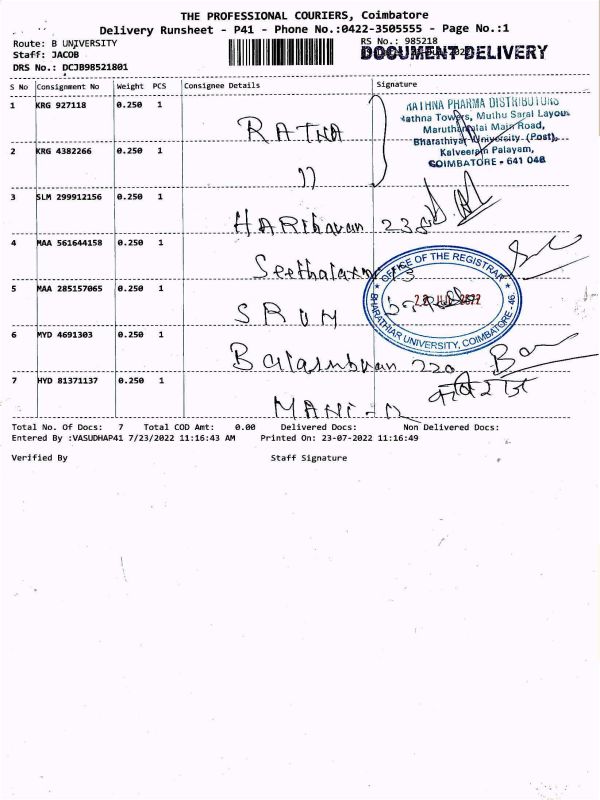 THE PROFESSIONAL COURIERS, Coimbatore
Delivery Runsheet - P41 - Phone No.:0422-3505555 - Page No.:1
Route: B UNIVERSITY
RS No.: 985218
Staff: JACOB
DOCUMENT DELIVERY
DRS No.: DCJB98521801
S No Consignment No Weight PCS Consignee Details Signature
1 KRG 927118 0.250 1
RATNA
RATHNA PHARMA DISTRIBUTORS
Rathna Towers, Muthu Saral Layout
Maruthamalai Main Road,
Bharathiyar University (Post),
Kalveeram Palayam,
COIMBATORE - 641 046
2 KRG 4382266 0.250 1
3 SLM 299912156 0.250 1
4 MAA 561644158 0.250 1
OFFICE OF THE REGISTRAR
BHARATHIAR UNIVERSITY, COIMBATORE - 46.
5 MAA 285157065 0.250 1
6 MYD 4691303 0.250 1
7 HYD 81371137 0.250 1
Total No. Of Docs: 7 Total COD Amt: 0.00 Delivered Docs: Non Delivered Docs:
Entered By :VASUDHAP41 7/23/2022 11:16:43 AM Printed On: 23-07-2022 11:16:49
Verified By Staff Signature